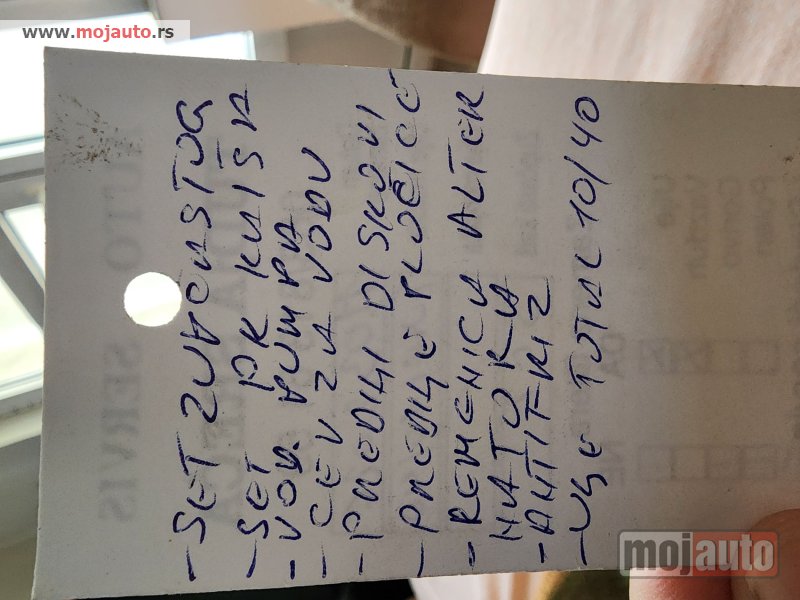 www.mojauto.rs
- SET ZUPČASTOG
- SET PK KAIŠA
- VOD. PUMPA
- CEV ZA VODU
- PREDNJI DISKOVI
- PREDNJE PLOČICE
- REMENICA ALTER
NATORA
- ANTIFRIZ
- ULJE TOTAL 10/40
mojauto